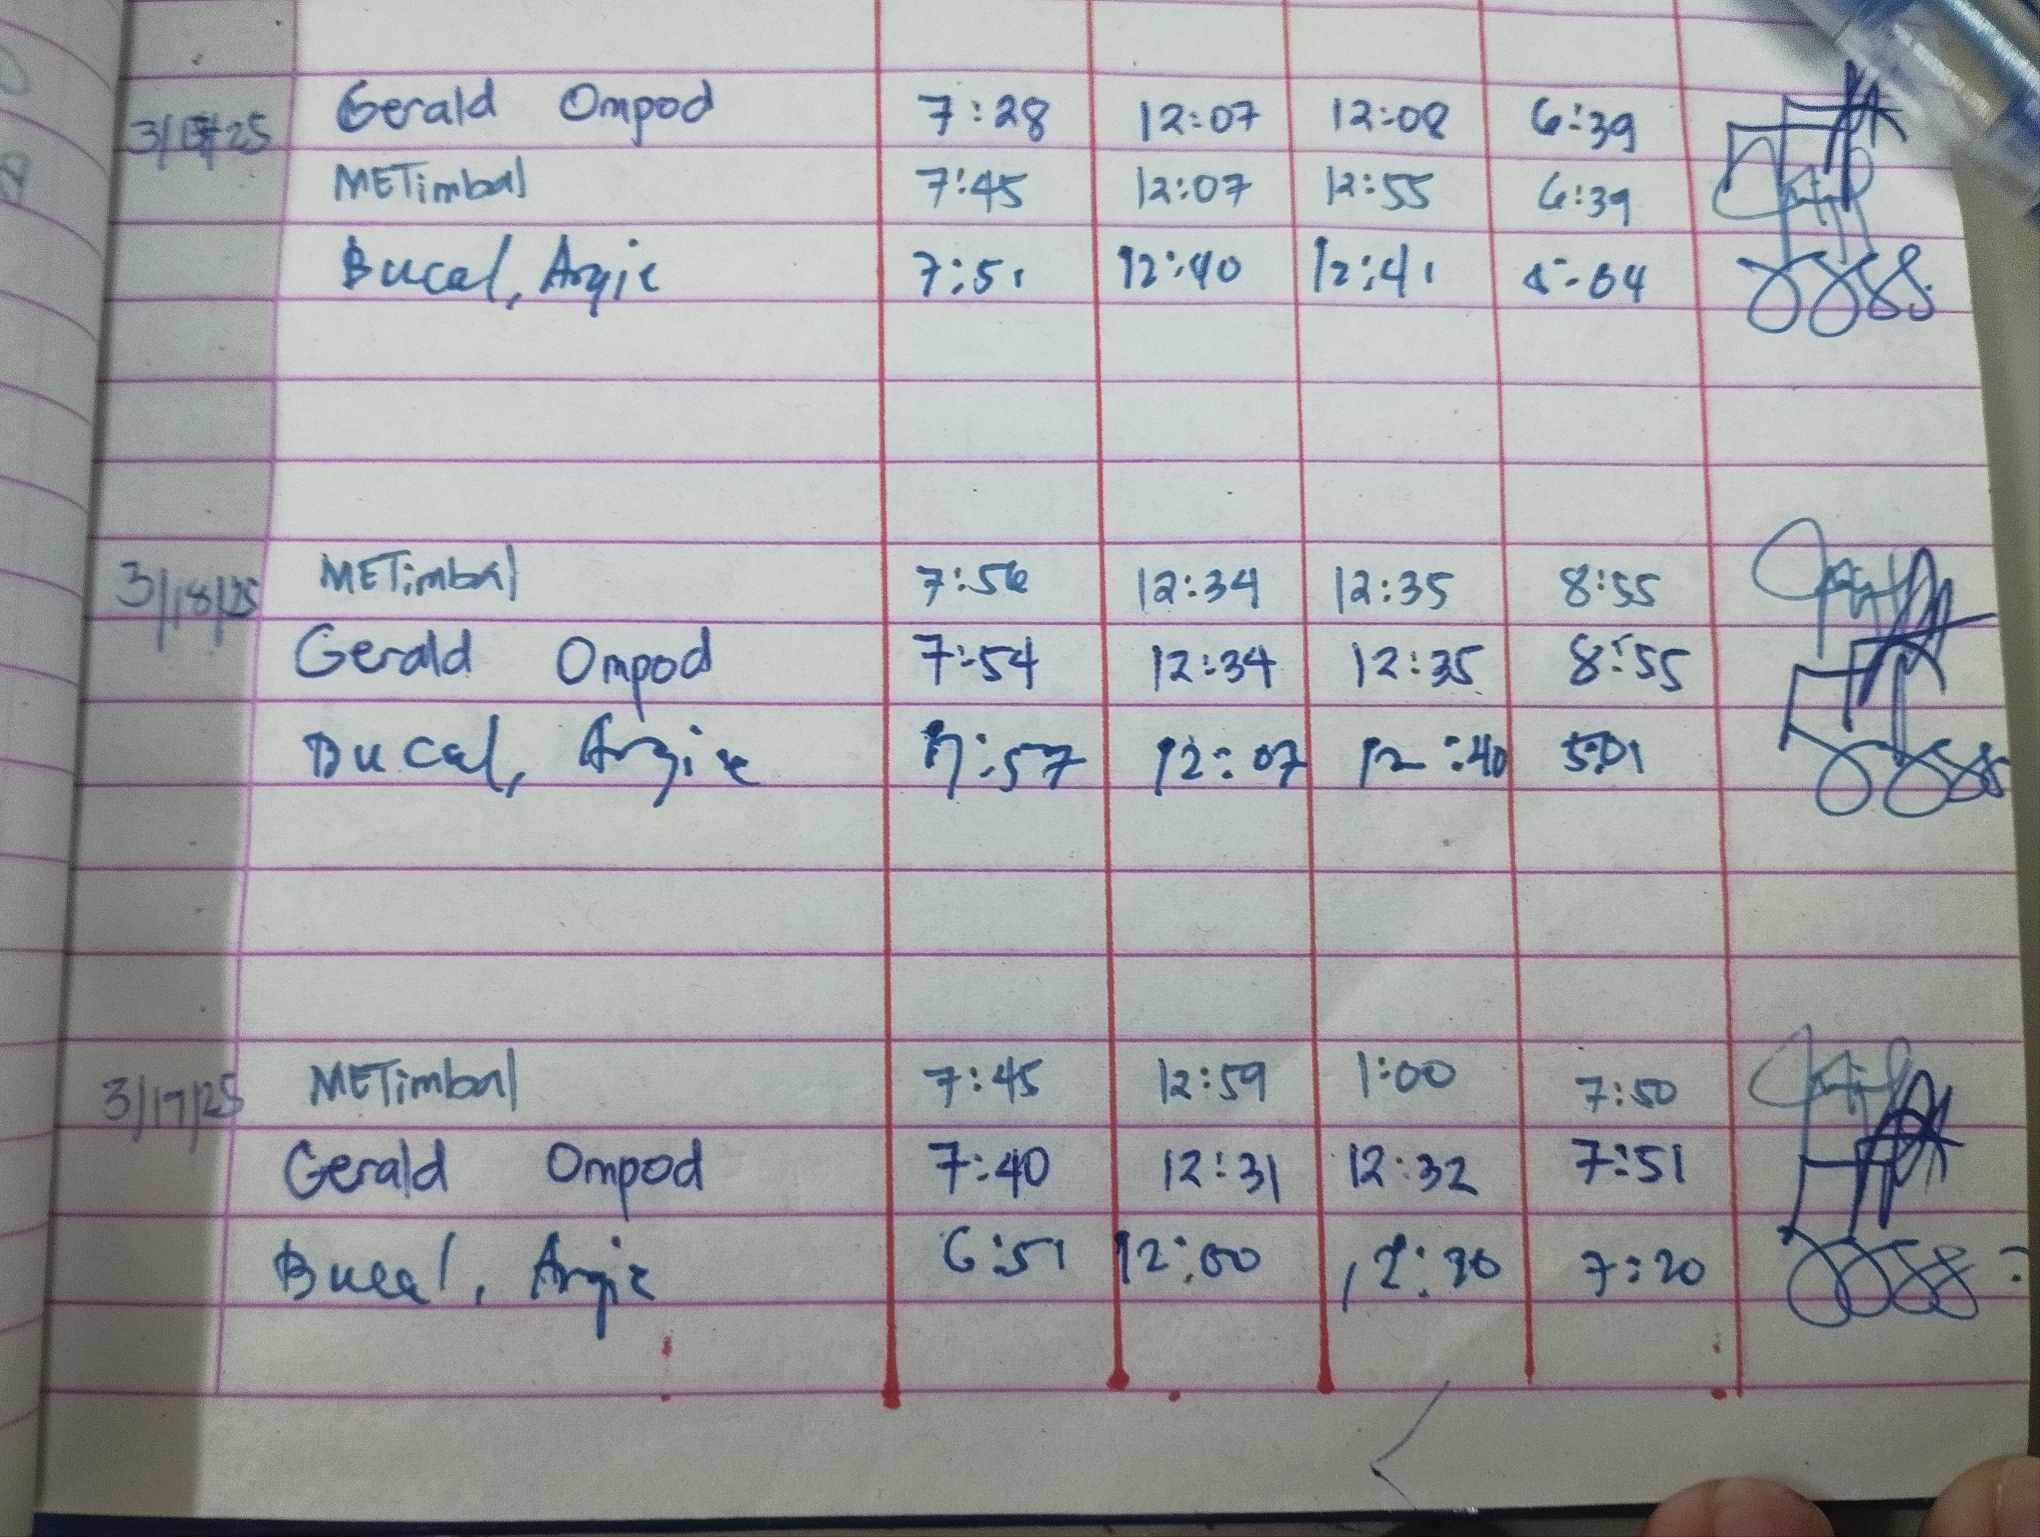 Gerald Ompod 7:28 12:07 12:08 6:39
METimbal 7:45 12:07 12:55 6:39
Bucal, Argie 7:51 12:40 12:41
3/18/25 METimbal 7:56 12:34 12:35 8:55
Gerald Ompod 7:54 12:34 12:35 8:55
Bucal, Argie 7:57 12:07 12:40 5:01
3/17/25 METimbal 7:45 12:59 1:00 7:50
Gerald Ompod 7:40 12:31 12:32 7:51
Bucal, Argie 6:51 12:00 12:30 7:20